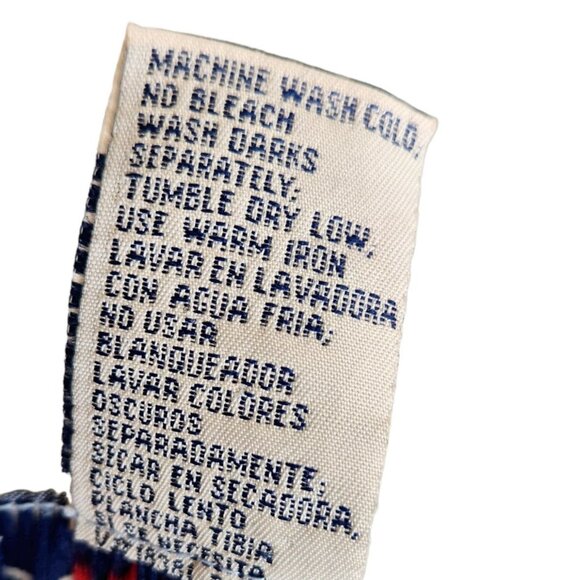 MACHINE WASH COLD,
NO BLEACH
WASH DARKS
SEPARATELY,
TUMBLE DRY LOW,
USE WARM IRON
LAVAR EN LAVADORA
CON AGUA FRIA,
NO USAR
BLANQUEADOR
LAVAR COLORES
OSCUROS
SEPARADAMENTE,
SECAR EN SECADORA,
CICLO LENTO
PLANCHA TIBIA
SI SE NECESITA